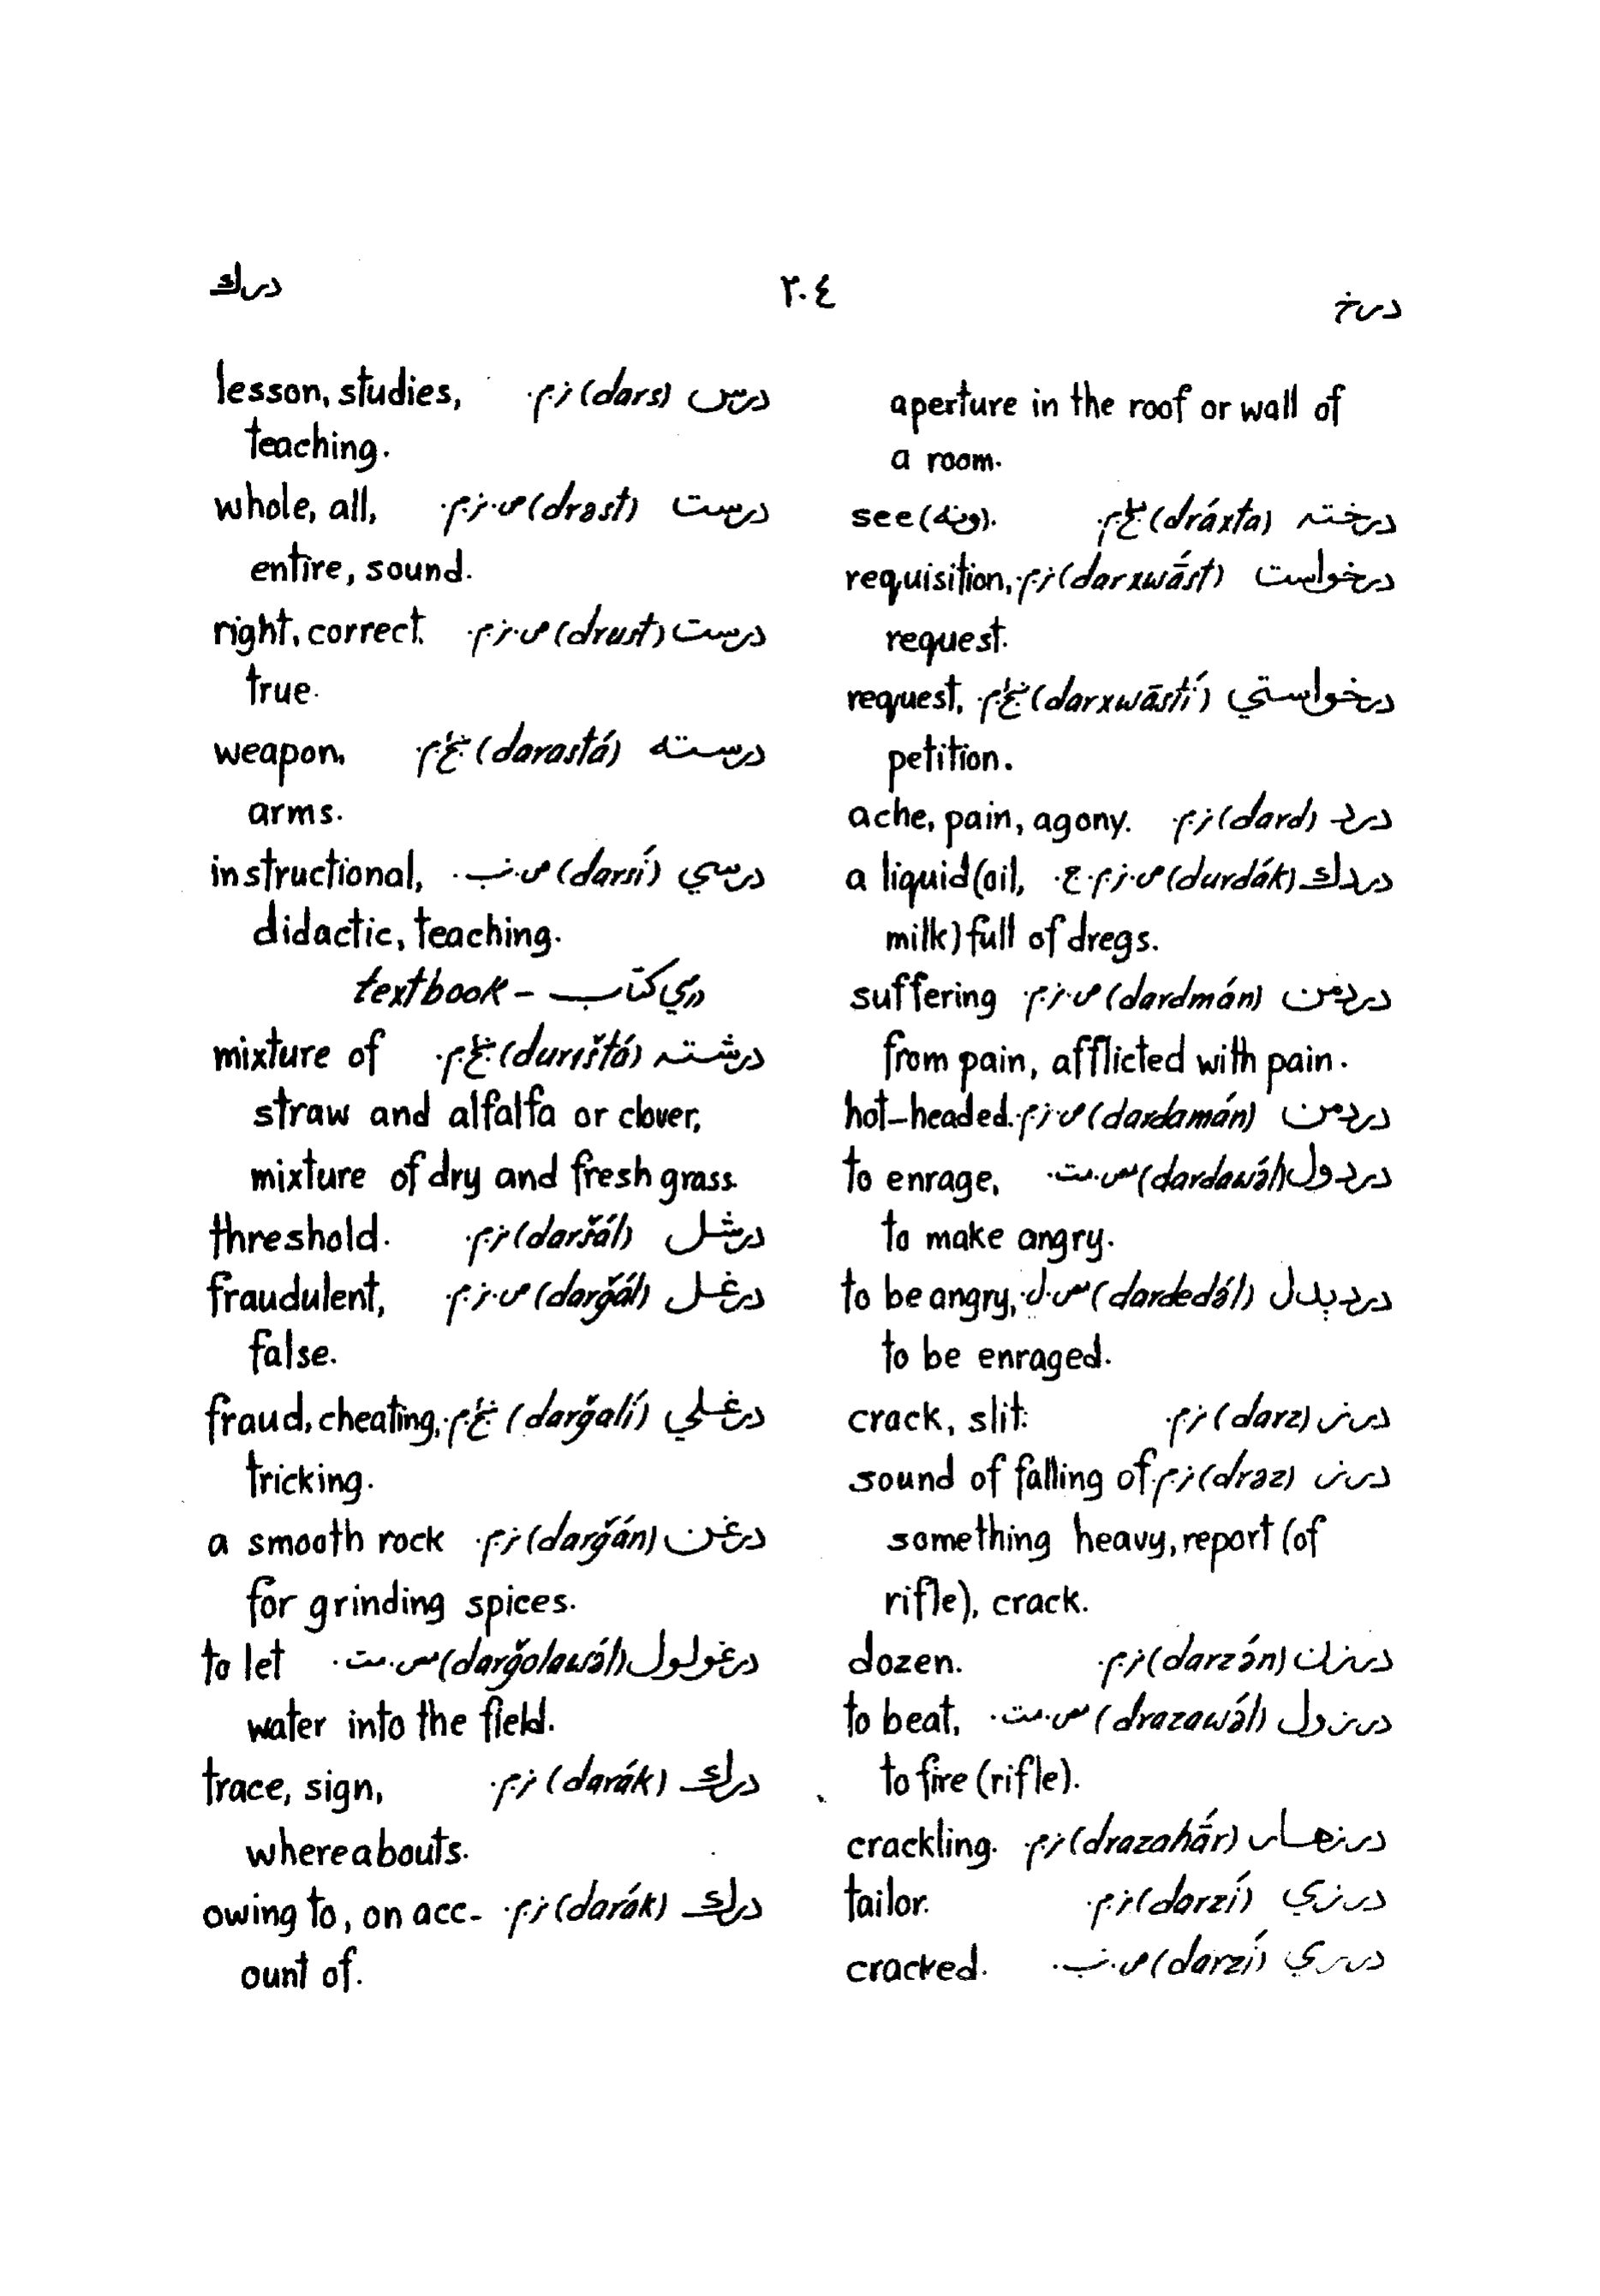 درخ ٢٠٤ درك
aperture in the roof or wall of
a room.
درخته (dráxta) see (ونه).
درخواست (darxwā́st) ز.م. requisition,
request.
درخواستي (darxwāstí) request,
petition.
درد (dard) ز.م. ache, pain, agony.
دردك (durdák) ص.ز.م.ج. a liquid (oil,
milk) full of dregs.
دردمن (dardmán) ص.ز.م. suffering
from pain, afflicted with pain.
دردمن (dardamán) ص.ز.م. hot-headed.
دردول (dardawə́l) مص.مت. to enrage,
to make angry.
درديدل (dardedə́l) مص.ل. to be angry,
to be enraged.
درز (darz) ز.م. crack, slit.
درز (drəz) ز.م. sound of falling of
something heavy, report (of
rifle), crack.
درزن (darzə́n) ز.م. dozen.
درزول (drazawə́l) مص.مت. to beat,
to fire (rifle).
درزهار (drazahā́r) ز.م. crackling.
درزي (darzí) ز.م. tailor.
درزي (darzí) ص.نب. cracked.
درس (dars) ز.م. lesson, studies,
teaching.
درست (drəst) ص.ز.م. whole, all,
entire, sound.
درست (drust) ص.ز.م. right, correct.
true.
درسته (darastá) weapon,
arms.
درسي (darsí) ص.نب. instructional,
didactic, teaching.
درسي كتاب - textbook
درشته (durištá) mixture of
straw and alfalfa or clover,
mixture of dry and fresh grass.
درشل (daršál) ز.م. threshold.
درغل (darǧál) ص.ز.م. fraudulent,
false.
درغلي (darǧalí) fraud, cheating,
tricking.
درغن (darǧán) ز.م. a smooth rock
for grinding spices.
درغولول (darǧolawə́l) مص.مت. to let
water into the field.
درك (darák) ز.م. trace, sign,
whereabouts.
درك (darák) ز.م. owing to, on acc-
ount of.